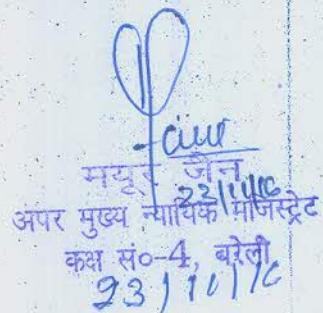 Jain
मयूर जैन
23/11/16
अपर मुख्य न्यायिक मजिस्ट्रेट
कक्ष सं०-4, बरेली
23/11/16